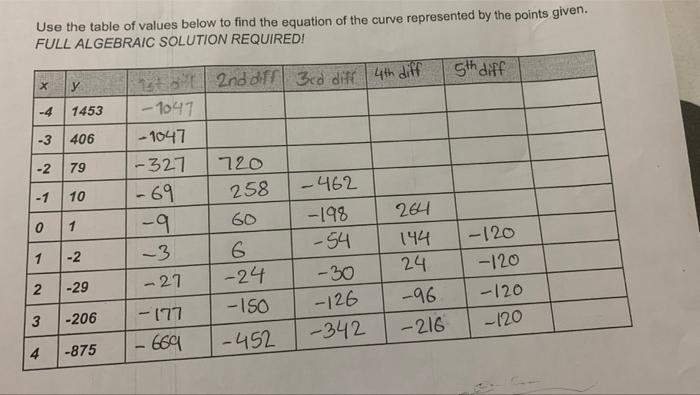 Use the table of values below to find the equation of the curve represented by the points given.
FULL ALGEBRAIC SOLUTION REQUIRED!
x y 1st diff 2nd diff 3rd diff 4th diff 5th diff
-4 1453 -1047
-3 406 -1047
-2 79 -327 720
-1 10 -69 258 -462
0 1 -9 60 -198 264
1 -2 -3 6 -54 144 -120
2 -29 -27 -24 -30 24 -120
3 -206 -177 -150 -126 -96 -120
4 -875 -669 -452 -342 -216 -120